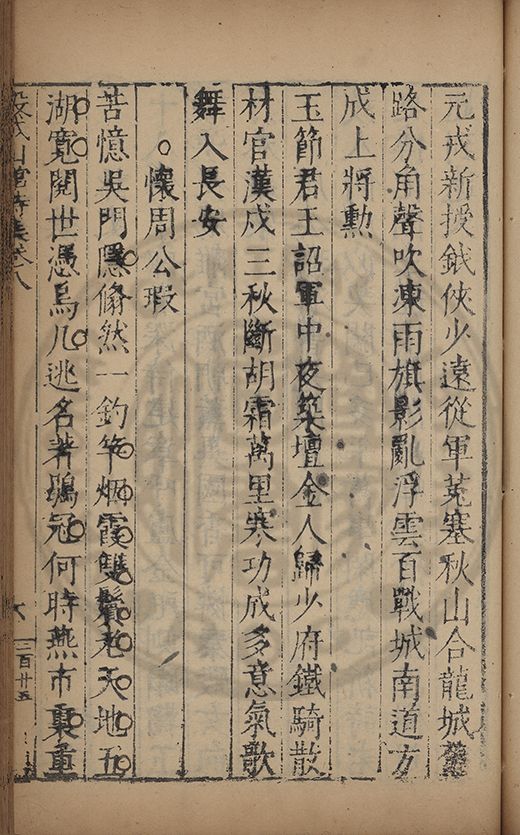 元戎新授鉞俠少遠從軍菟塞秋山合龍城
路分角聲吹凍雨旗影亂浮雲百戰城南道方
成上將勲
玉節君王詔軍中夜築壇金人歸少府鐵騎散
材官漢戍三秋斷胡霜萬里寒功成多意氣歌
舞入長安
○懷周公瑕
苦憶吳門隱翛然一釣竿烟霞雙鬢老天地五
湖寬閱世憑烏几逃名著鶡冠何時燕市裏重
穀城山館詩集卷八
三百廿五